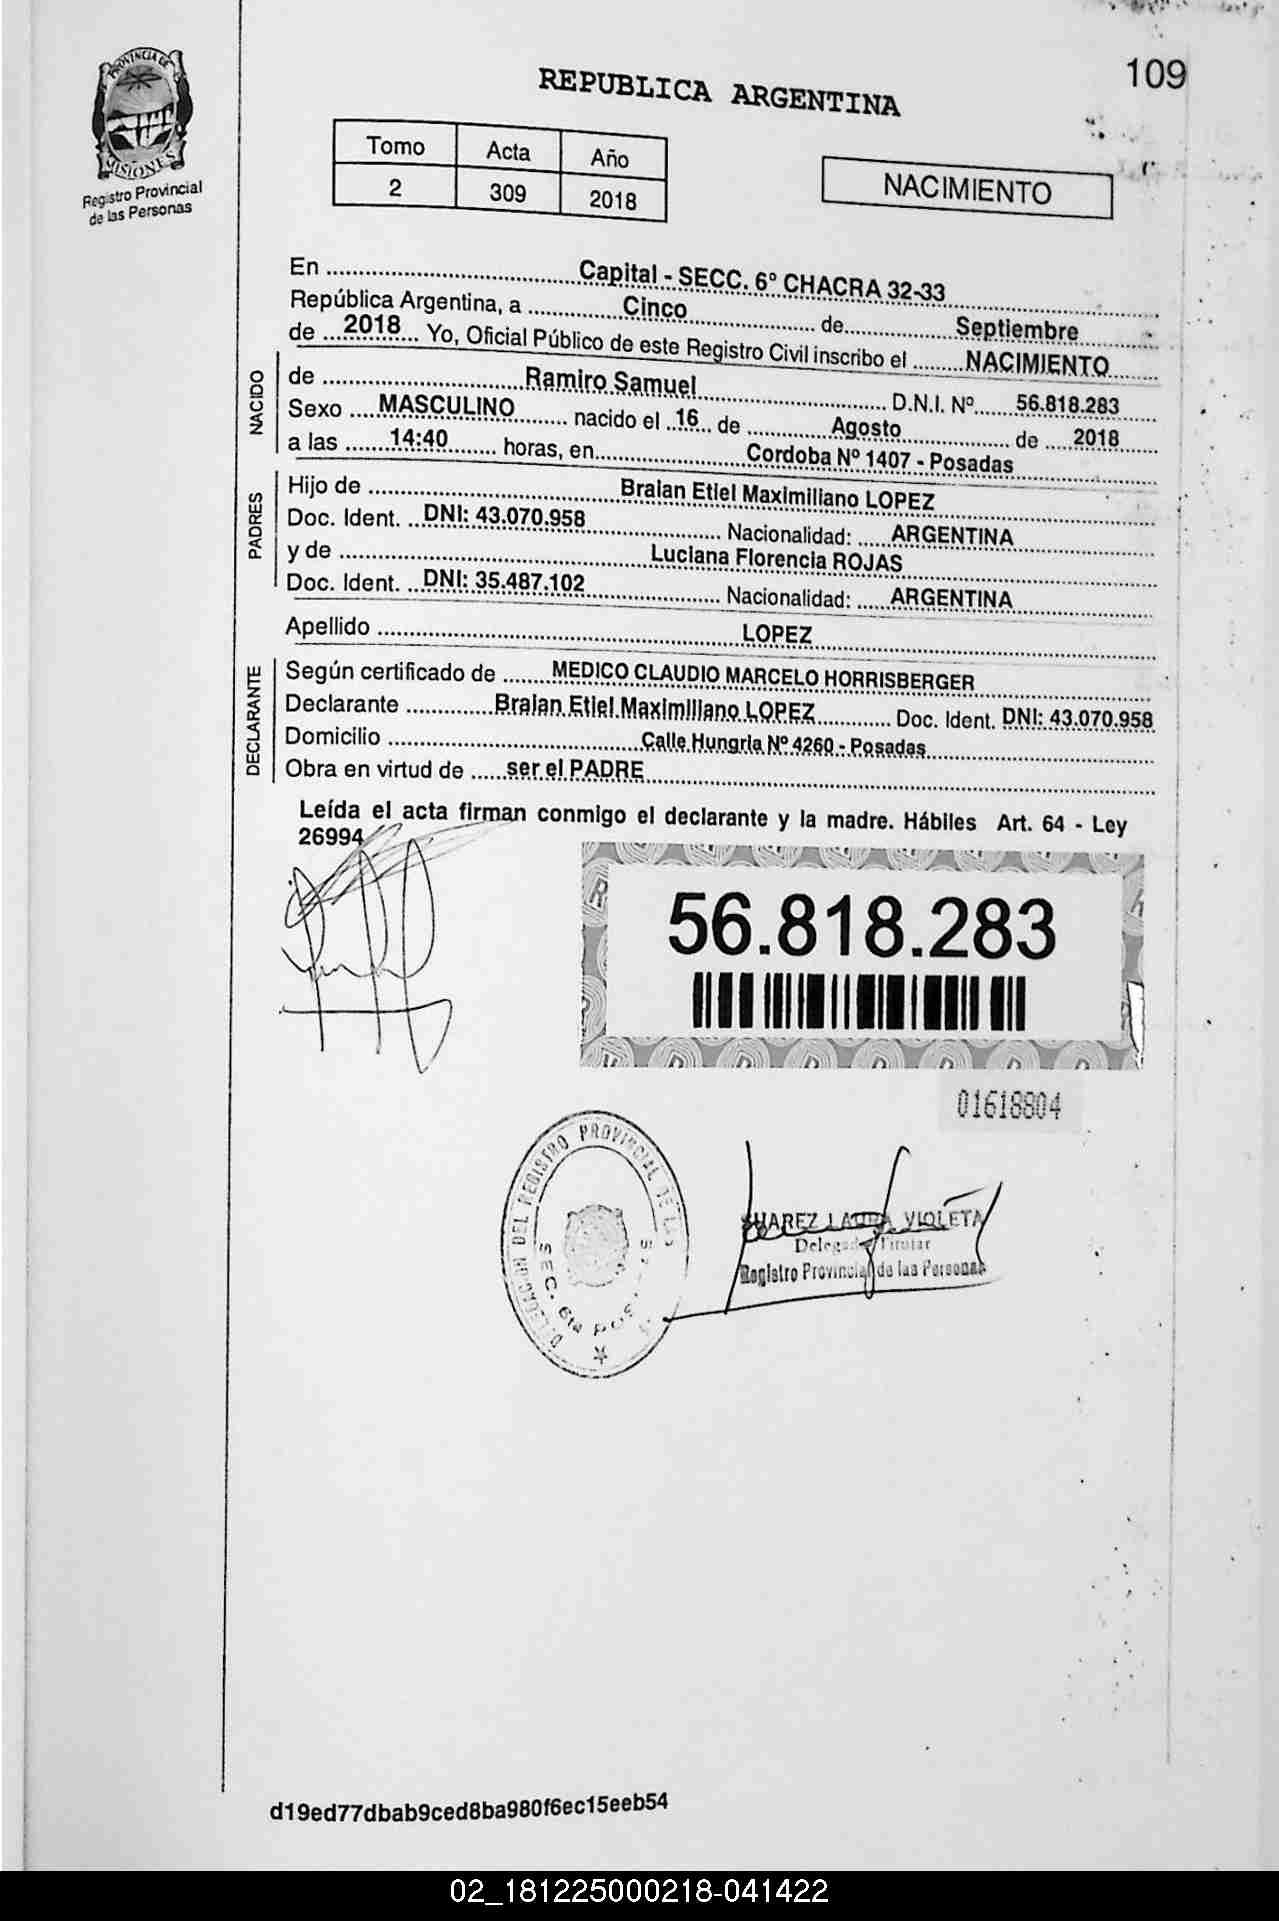 109
PROVINCIA DE
MISIONES
Registro Provincial
de las Personas
REPUBLICA ARGENTINA
Tomo Acta Año
2 309 2018
NACIMIENTO
En ........ Capital - SECC. 6º CHACRA 32-33
República Argentina, a ........ Cinco ........ de ........ Septiembre
de ... 2018 ... Yo, Oficial Público de este Registro Civil inscribo el ........ NACIMIENTO
NACIDO
de ........ Ramiro Samuel ........ D.N.I. Nº ...... 56.818.283
Sexo .... MASCULINO ........ nacido el .. 16 .. de ........ Agosto ........ de .... 2018
a las ...... 14:40 ........ horas, en ........ Cordoba Nº 1407 - Posadas
PADRES
Hijo de ........ Braian Etiel Maximiliano LOPEZ
Doc. Ident. .. DNI: 43.070.958 ........ Nacionalidad: ..... ARGENTINA
y de ........ Luciana Florencia ROJAS
Doc. Ident. .. DNI: 35.487.102 ........ Nacionalidad: ..... ARGENTINA
Apellido ........ LOPEZ
DECLARANTE
Según certificado de ....... MEDICO CLAUDIO MARCELO HORRISBERGER
Declarante ........ Braian Etiel Maximiliano LOPEZ ........ Doc. Ident. DNI: 43.070.958
Domicilio ........ Calle Hungria Nº 4260 - Posadas
Obra en virtud de ..... ser el PADRE
Leída el acta firman conmigo el declarante y la madre. Hábiles Art. 64 - Ley
26994
56.818.283
01618804
DELEGACION DEL REGISTRO PROVINCIAL DE LAS
SEC. 6ta
SUAREZ LAURA VIOLETA
Delegada Titular
Registro Provincial de las Personas
d19ed77dbab9ced8ba980f6ec15eeb54
02_181225000218-041422